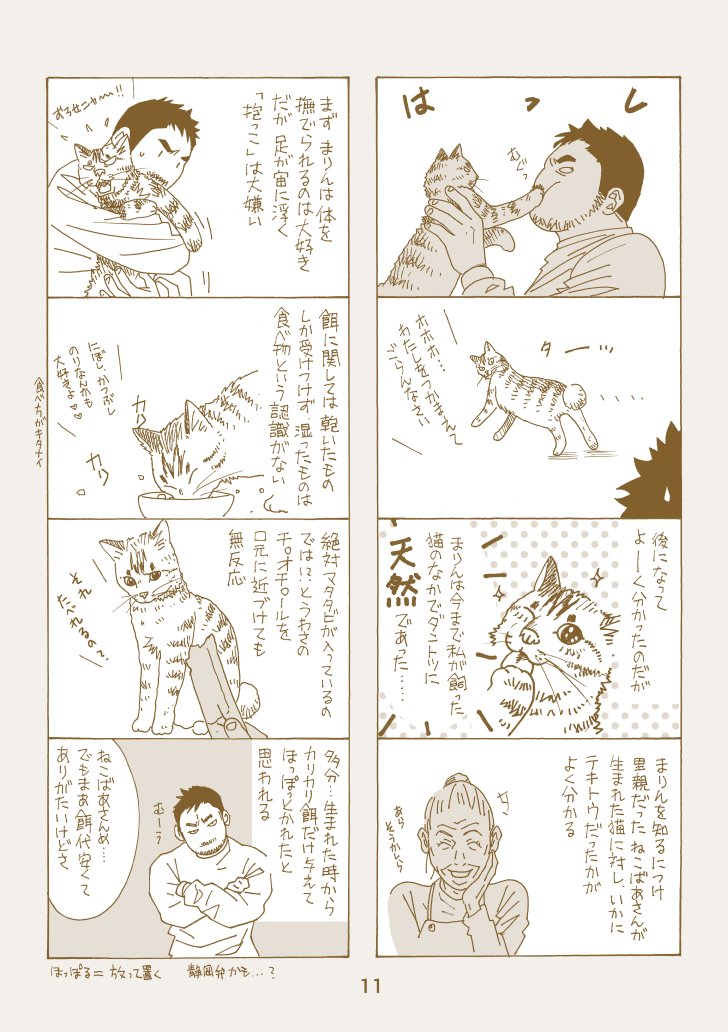 はっし
むぐっ
ターッ
ホホホ…
わたしをつかまえて
ごらんなさい
後になって
よーーく分かったのだが
まりんは今まで私が飼った
猫のなかでダントツに
天然
であった……
まりんを知るにつけ
里親だった ねこばあさんが
生まれた猫に対し、いかに
テキトウだったかが
よく分かる
あら
そうかしら
まず まりんは 体を
撫でられるのは大好き
だが 足が宙に浮く
「抱っこ」は大嫌い
餌に関しては 乾いたもの
しか受けつけず、湿ったものは
食べ物という 認識がない
にぼし、かつぶし
のりなんかも
大好きよ♡♡
カリ
カリ
食べちがキタナイ
絶対 マタタビが入っているの
では!?とうわさの
チ。オチ。ールを
口元に近づけても
無反応
それ
たべれるの?
多分…生まれた時から
カリカリ餌だけ与えて
ほっぽっとかれたと
思われる
むーぅ
ねこばあさんめ…
でもまあ餌代安くて
ありがたいけどさ
ほっぽる＝放って置く　静岡弁かも…？
11